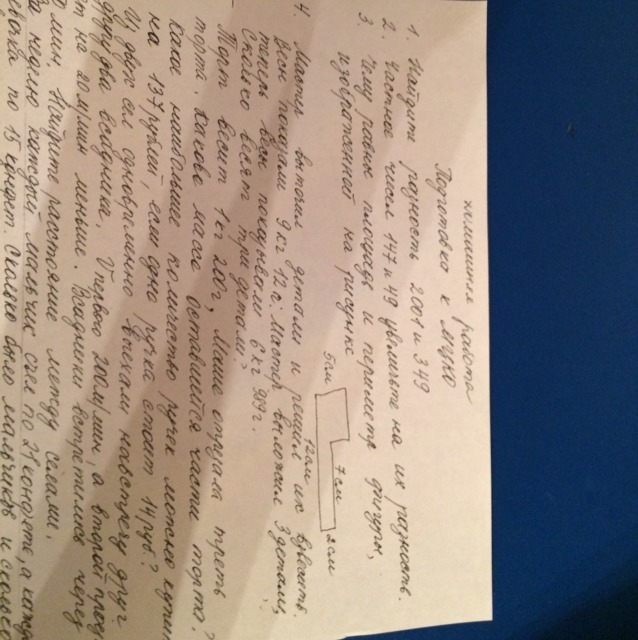 домашняя работа
Подготовка к МЦКО
1. Найдите разность 2001 и 319
2. Частное чисел 147 и 19 увеличьте на их разность.
3. Чему равны площадь и периметр фигуры,
изображенной на рисунке
5см
2см
7см
2см
4. Мастер выточил детали и решил их взвесить.
Весы показали 9кг 12г. Мастер выложил 3 детали,
весы показывали 6кг 909г.
Сколько весят три детали?
Торт весит 1кг 200г, Маша отрезала треть
торта. Какова масса оставшейся части торта?
Какое наибольшее количество ручек можно купить
на 137 рублей, если одна ручка стоит 14 руб?
Из двух сёл одновременно выехали навстречу друг
другу два всадника. У первого 200м/мин, а второй
на 20м/мин меньше. Всадники встретились через
мин. Найдите расстояние между сёлами.
неделю каждый мальчик съел по конфете, а
по 15 конфет. Сколько было мальчиков и